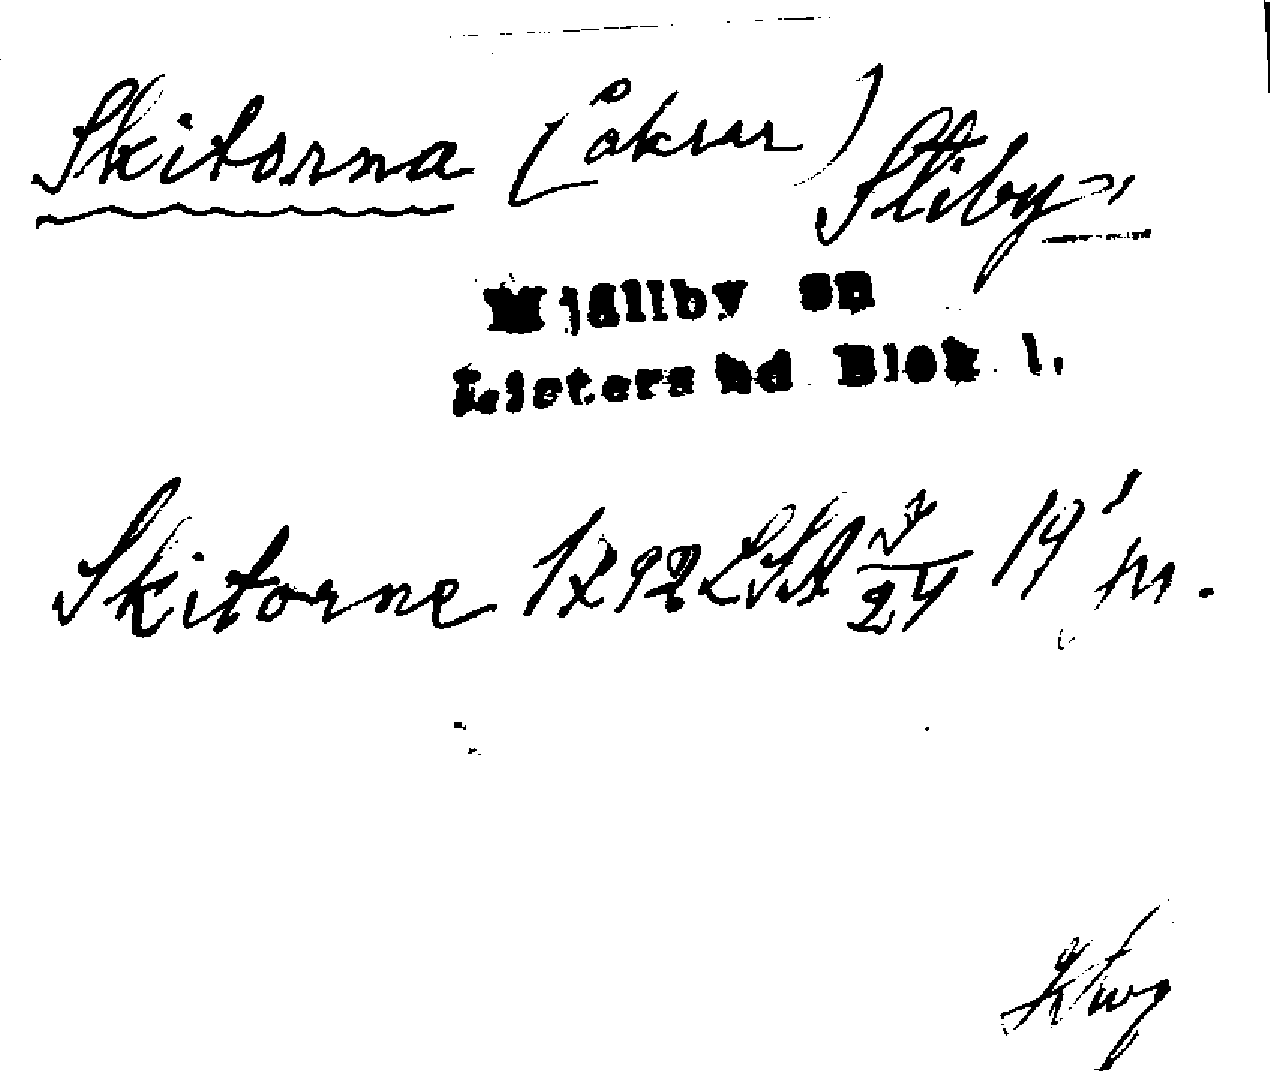 Skitorna (åkrar) Stiby,
Mjällby sn
Listers hd Blek l.
Skitorne 1792 LSA 24 19' m.